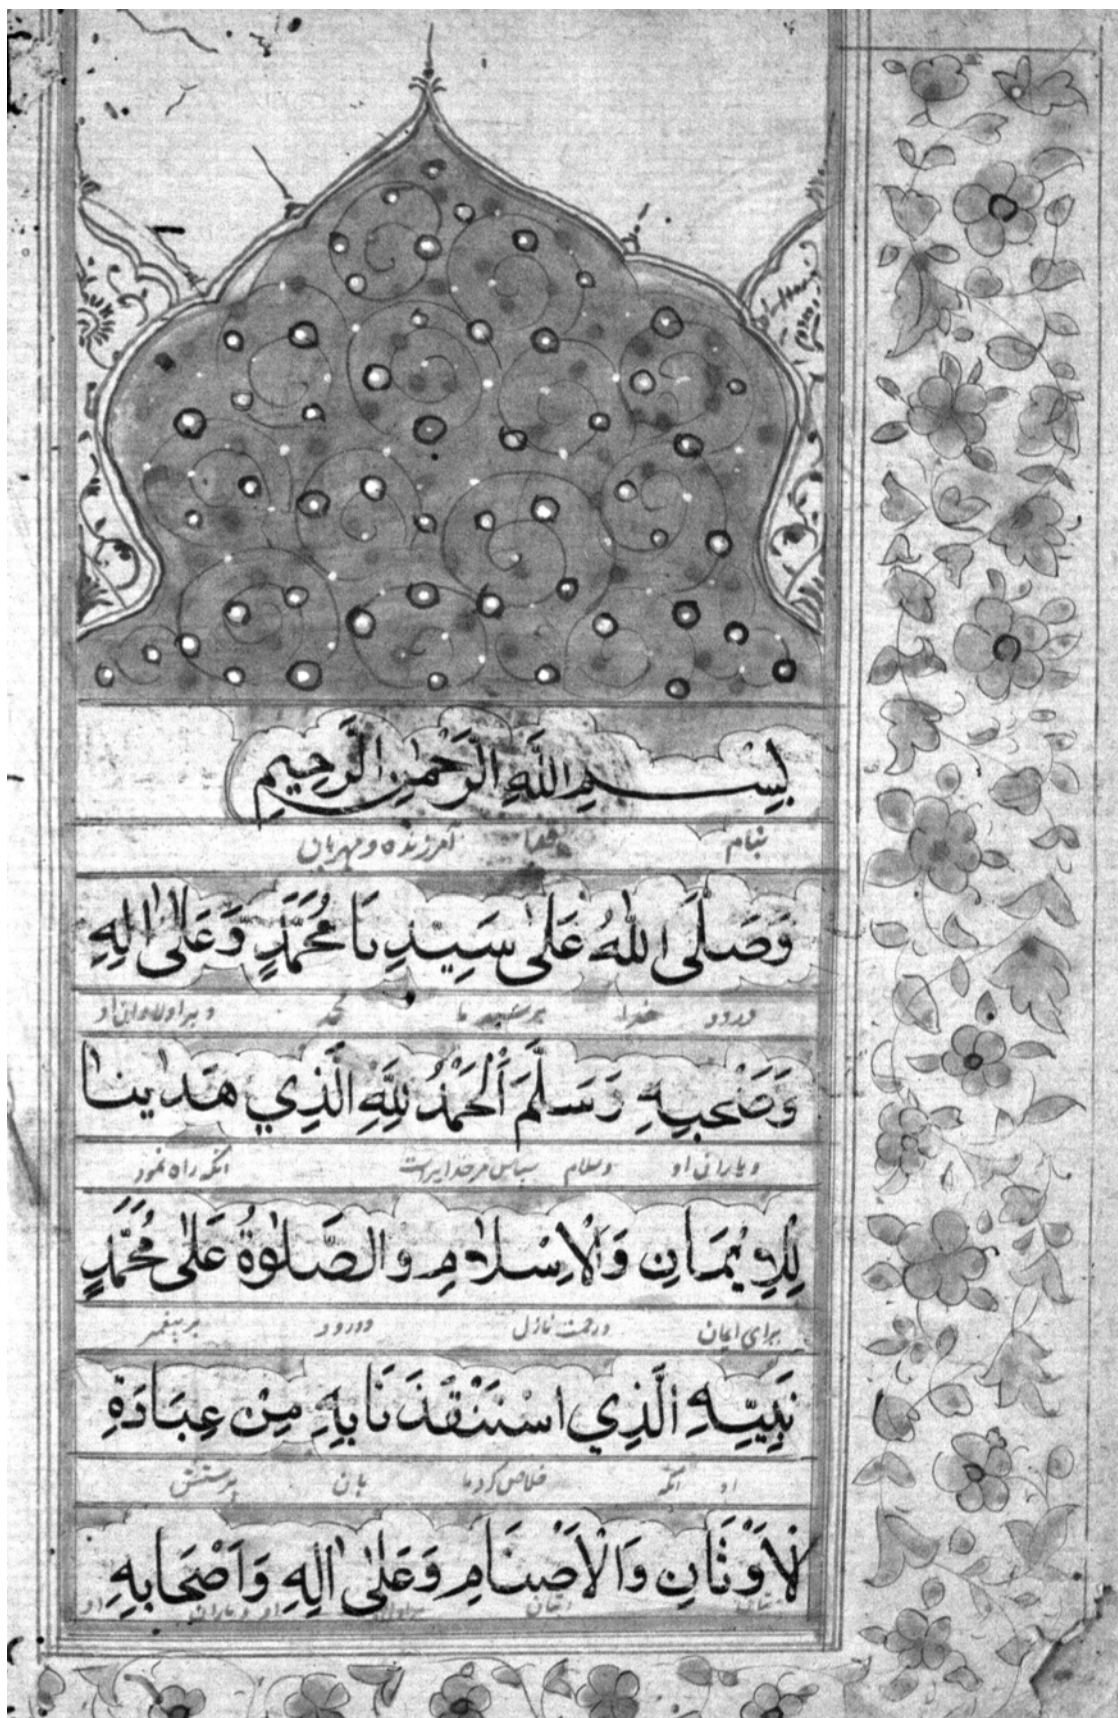 بِسْمِ اللَّهِ الرَّحْمٰنِ الرَّحِيمِ
بنام خدا آمرزنده و مهربان
وَصَلَّى اللّٰهُ عَلٰى سَيِّدِنَا مُحَمَّدٍ وَّعَلٰى اٰلِهِ
درود خدا بر سید ما محمد و بر اولادان او
وَصَحْبِهِ وَسَلَّمَ اَلْحَمْدُ لِلَّهِ الَّذِي هَدٰينَا
و یاران او وسلام سپاس مر خدایراست انکه راه نمود
لِلْاِيْمَانِ وَالْاِسْلَامِ وَالصَّلٰوةُ عَلٰى مُحَمَّدٍ
برای ایمان ورحمت نازل ودرود بر پیغمبر
نَبِيِّهِ الَّذِي اسْتَنْقَذَنَا بِهِ مِنْ عِبَادَةِ
او انکه خلاص کرد ما بان پرستش
الْاَوْثَانِ وَالْاَصْنَامِ وَعَلٰى اٰلِهِ وَاَصْحَابِهِ